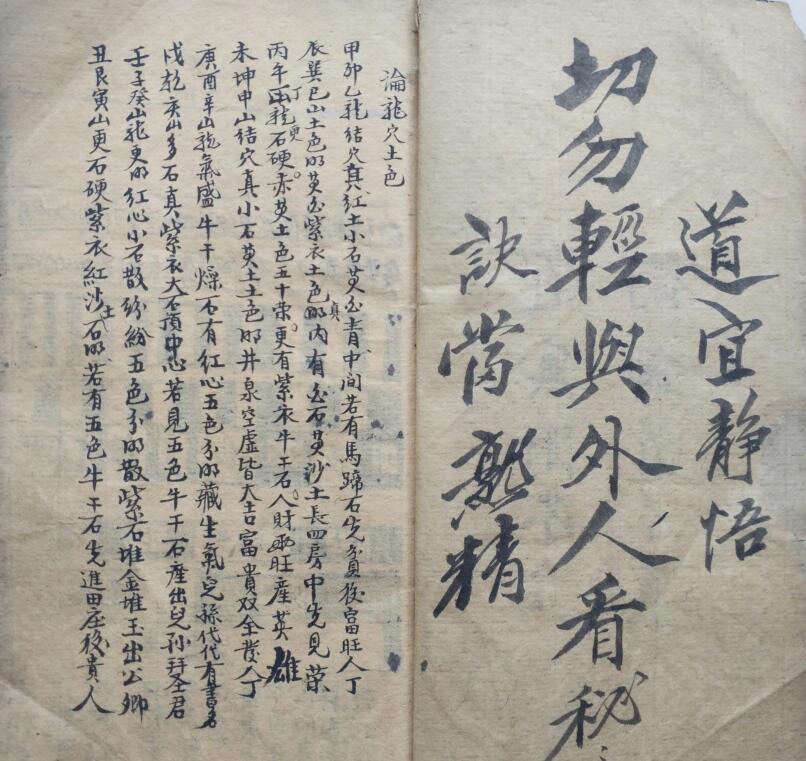 道宜靜悟
切勿輕與外人看秘
訣當熟精
論龍穴土色
甲卯乙龍結穴真紅土小石黃白青中间若有馬蹄石先貧後富旺人丁
辰巽巳山土色明黃白紫衣土色明内有白石黃沙土長四房中先見榮
丙午丁龍石更硬赤黃土色五十荣更有紫衣牛干石人財两旺産英雄
未坤申山結穴真小石黃土土色明井泉空虛皆大吉富貴双全發人丁
庚酉辛山龍氣盛牛干燥石有紅心五色分明藏生氣兒孫代代有書名
戌乾亥山多石真紫衣大石頂中心若見五色牛干石産出兒孙拜圣君
壬子癸山龍更明紅心小石散紛紛五色分明散紫石堆金堆玉出公卿
丑艮寅山更石硬紫衣紅沙土石明若有五色牛干石先進田庄後貴人